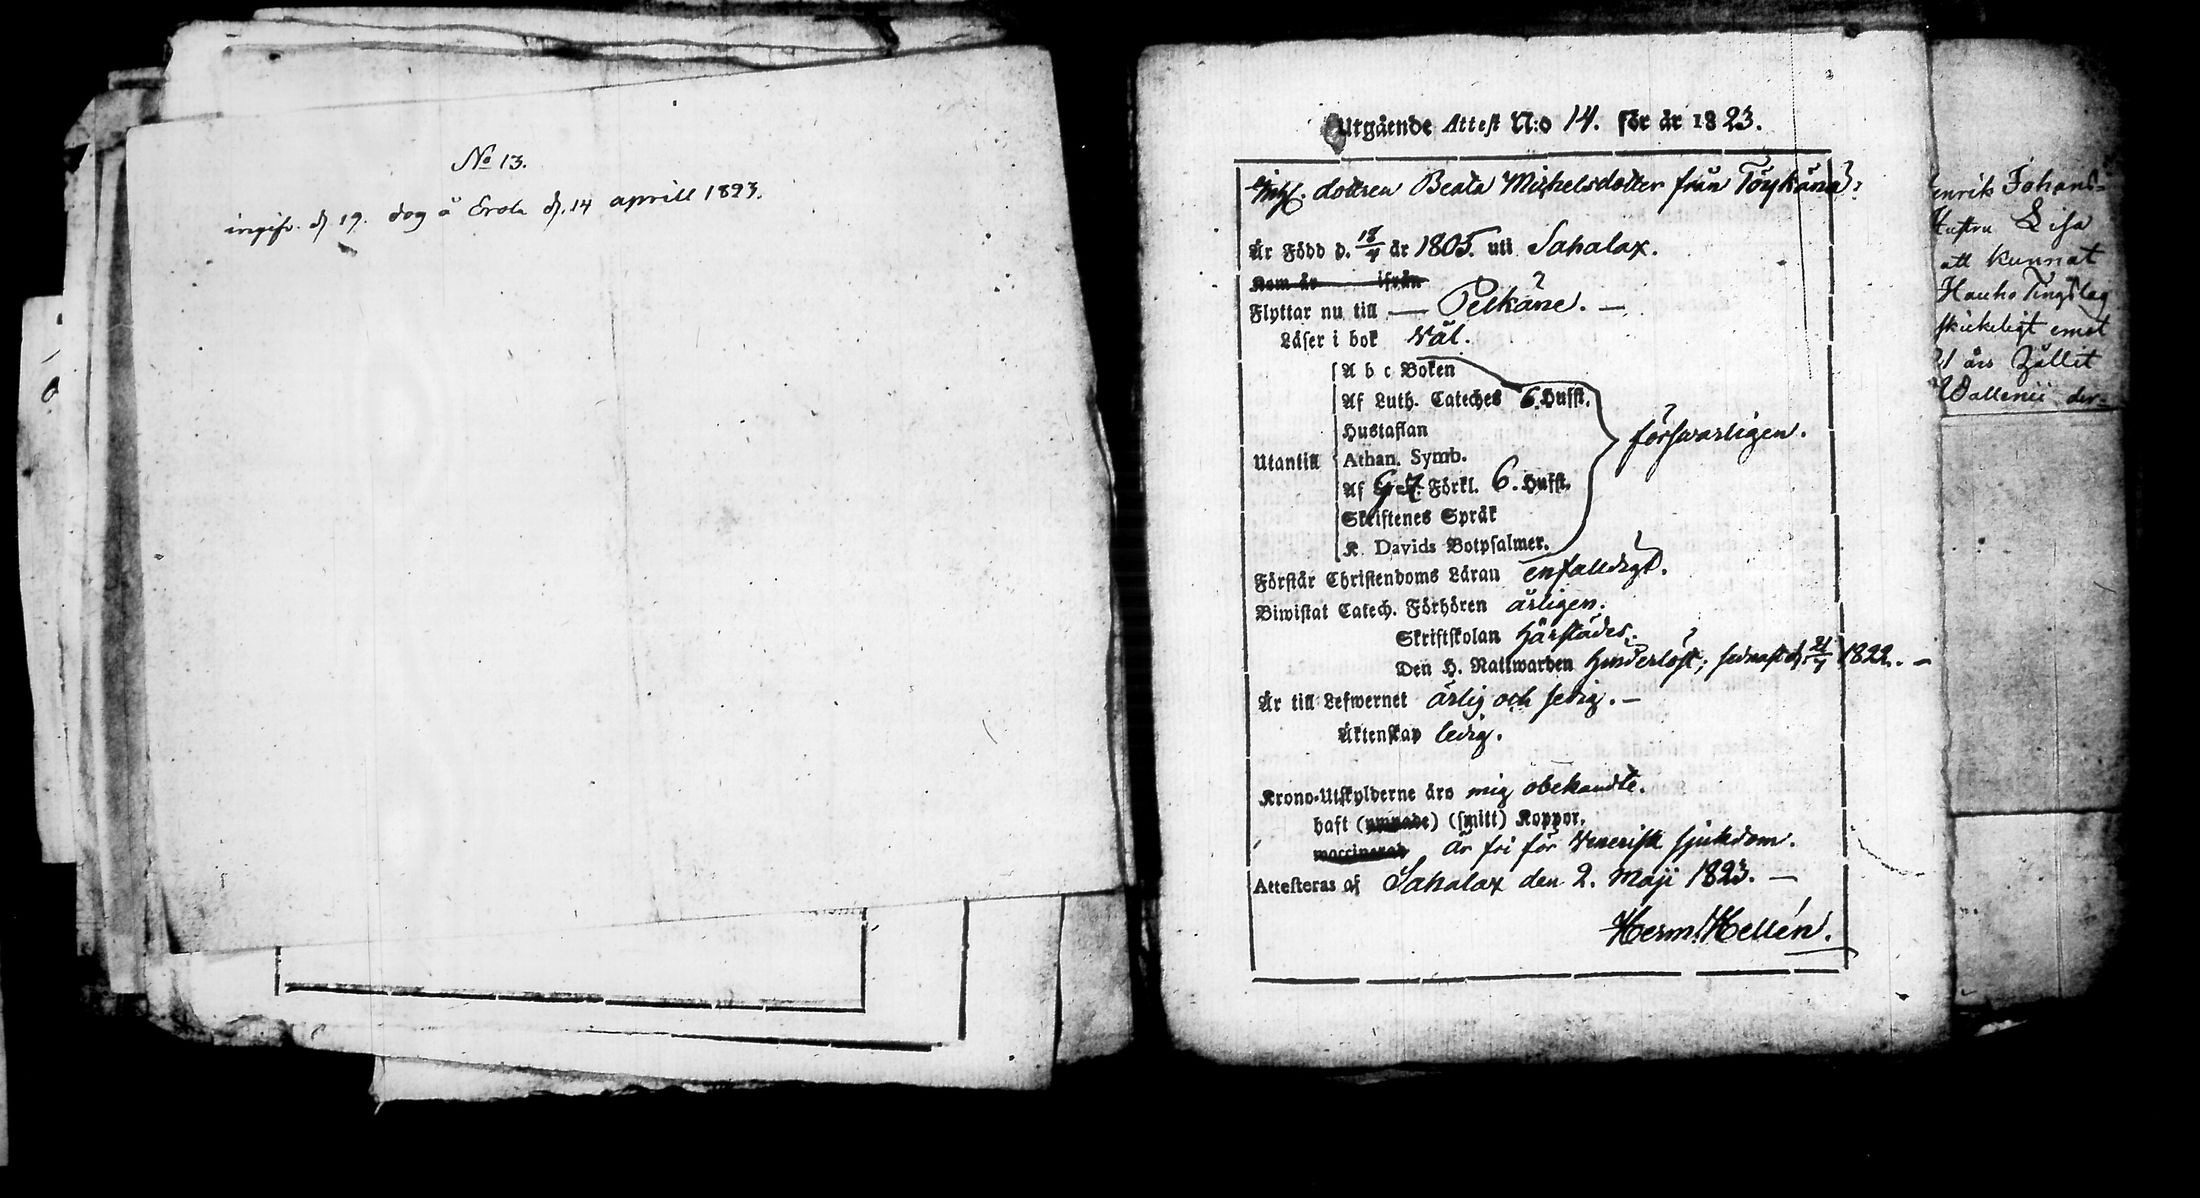 No 13.
ingifv. d 19. dog å Erola d. 14 aprill 1823.
Utgående Attest N:o 14. för år 1823.
Inh. dottren Beata Michelsdotter från Töykänä
Är Född d. 18/4 år 1805. uti Sahalax.
Kom år ifrån
Flyttar nu till — Pelkäne. —
Läser i bok väl.
A b c Boken
Af Luth. Cateches 6. Hufst.
Hustaflan
försvarligen.
Utantill
Athan. Symb.
Af Förkl. 6. Hufst.
Skriftenes Språk
K. Davids Botpsalmer.
Förstår Christendoms Läran enfalldigt.
Biwistat Catech. Förhören årligen.
Skriftskolan härstädes.
Den H. Nattwarden hinderlöst; sednast d. 21/4 1822. —
Är till Lefwernet ärlig och sedig. —
Äktenskap ledig.
Krono-Utskylderne äro mig obekandte.
haft (ympade) (smitt) Koppor.
waccinerad är fri för Venerisk sjukdom.
Attesteras af Sahalax den 2. Maji 1823. —
Herm. Hellén.
enrik Johans=
Hustru Lisa
att kunnat
Hauho Tingslag
skickeligt emot
21 års
Wallenii der=